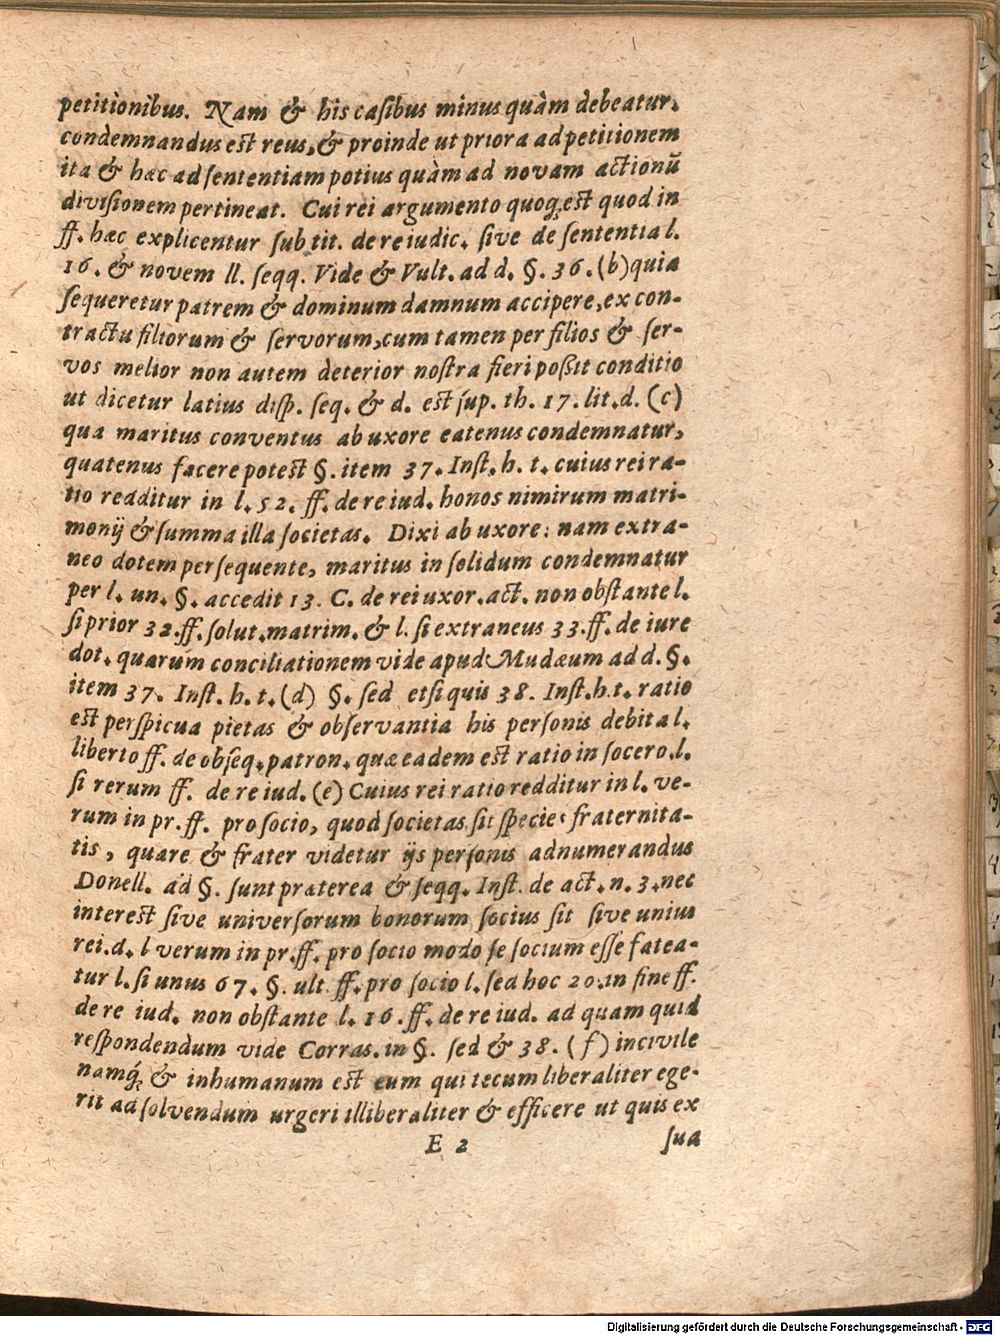 petitionibus. Nam & his casibus minus quàm debeatur,
condemnandus est reus, & proinde ut priora ad petitionem
ita & hæc ad sententiam potius quàm ad novam actionũ
divisionem pertineat. Cui rei argumento quoq; est quod in
ff. hæc explicentur sub tit. de re iudic. sive de sententia l.
16. & novem ll. seqq. Vide & Vult. ad d. §. 36. (b) quia
sequeretur patrem & dominum damnum accipere, ex con-
tractu filiorum & servorum, cum tamen per filios & ser-
vos melior non autem deterior nostra fieri poßit conditio
ut dicetur latius disp. seq. & d. est sup. th. 17. lit. d. (c)
qua maritus conventus ab uxore eatenus condemnatur,
quatenus facere potest §. item 37. Inst. h. t. cuius rei ra-
tio redditur in l. 52. ff. de re iud. honos nimirum matri-
monij & summa illa societas. Dixi ab uxore: nam extra-
neo dotem persequente, maritus in solidum condemnatur
per l. un. §. accedit 13. C. de rei uxor. act. non obstante l.
si prior 32. ff. solut. matrim. & l. si extraneus 33. ff. de iure
dot. quarum conciliationem vide apud Mudæum ad d. §.
item 37. Inst. h. t. (d) §. sed etsi quis 38. Inst. h. t. ratio
est perspicua pietas & observantia his personis debita l.
liberto ff. de obseq. patron. quæ eadem est ratio in socero. l.
si rerum ff. de re iud. (e) Cuius rei ratio redditur in l. ve-
rum in pr. ff. pro socio, quod societas sit species fraternita-
tis, quare & frater videtur ijs personis adnumerandus
Donell. ad §. sunt præterea & seqq. Inst. de act. n. 3. nec
interest sive universorum bonorum socius sit sive unius
rei. d. l verum in pr. ff. pro socio modo se socium esse fatea-
tur l. si unus 67. §. ult. ff. pro socio l. sed hoc 20. in fine ff.
de re iud. non obstante l. 16. ff. de re iud. ad quam quid
respondendum vide Corras. in §. sed & 38. (f) incivile
namq; & inhumanum est eum qui tecum liberaliter ege-
rit ad solvendum urgeri illiberaliter & efficere ut quis ex
E 2 sua
Digitalisierung gefördert durch die Deutsche Forschungsgemeinschaft - DFG